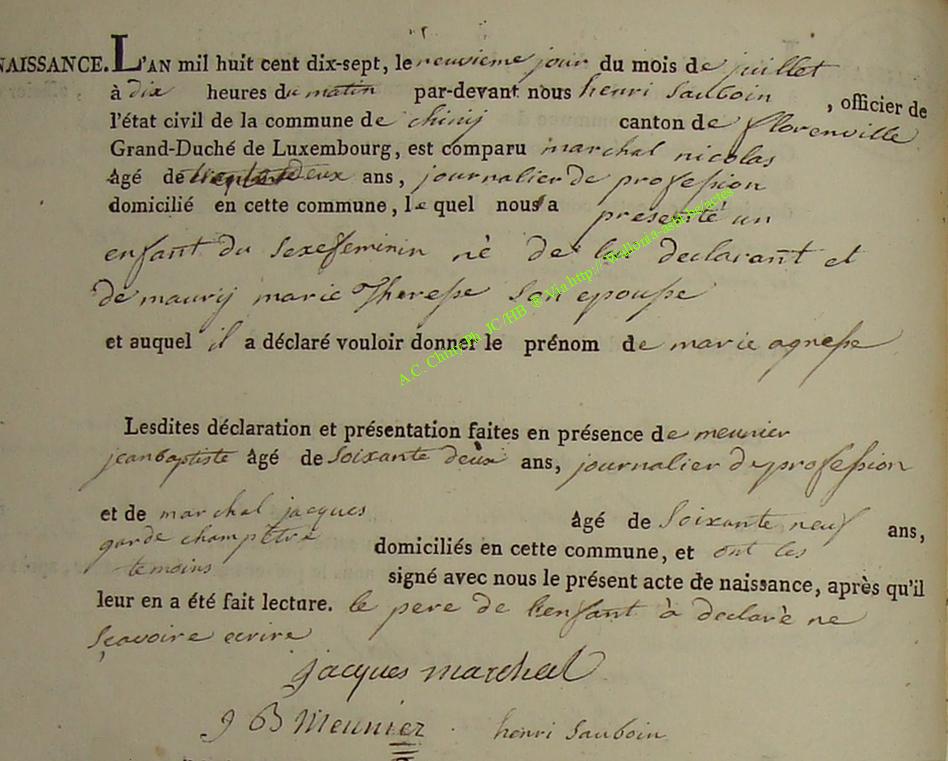 NAISSANCE. L'AN mil huit cent dix-sept, le neuvieme jour du mois de juillet
à dix heures du matin par-devant nous henri Sauboin , officier de
l'état civil de la commune de chinij canton de florenville
Grand-Duché de Luxembourg, est comparu marchal nicolas
âgé de deux ans, journalier de profession
domicilié en cette commune, le quel nous a presenté un
enfant du Sexe feminin né de lui declarant et
de maurij marie Therese Son epouse
et auquel il a déclaré vouloir donner le prénom de marie agnese
A.C. Chiny Ph. JC/HB ® Via http://wallonia-asbl.be/actes
Lesdites déclaration et présentation faites en présence de meunier
jean baptiste âgé de Soixante deux ans, journalier de profession
et de marchal jacques âgé de Soixante neuf ans,
garde champêtre domiciliés en cette commune, et ont les
temoins signé avec nous le présent acte de naissance, après qu'il
leur en a été fait lecture. le pere de l'enfant à declaré ne
sçavoire ecrire
jacques marchal
J B Meunier henri Sauboin